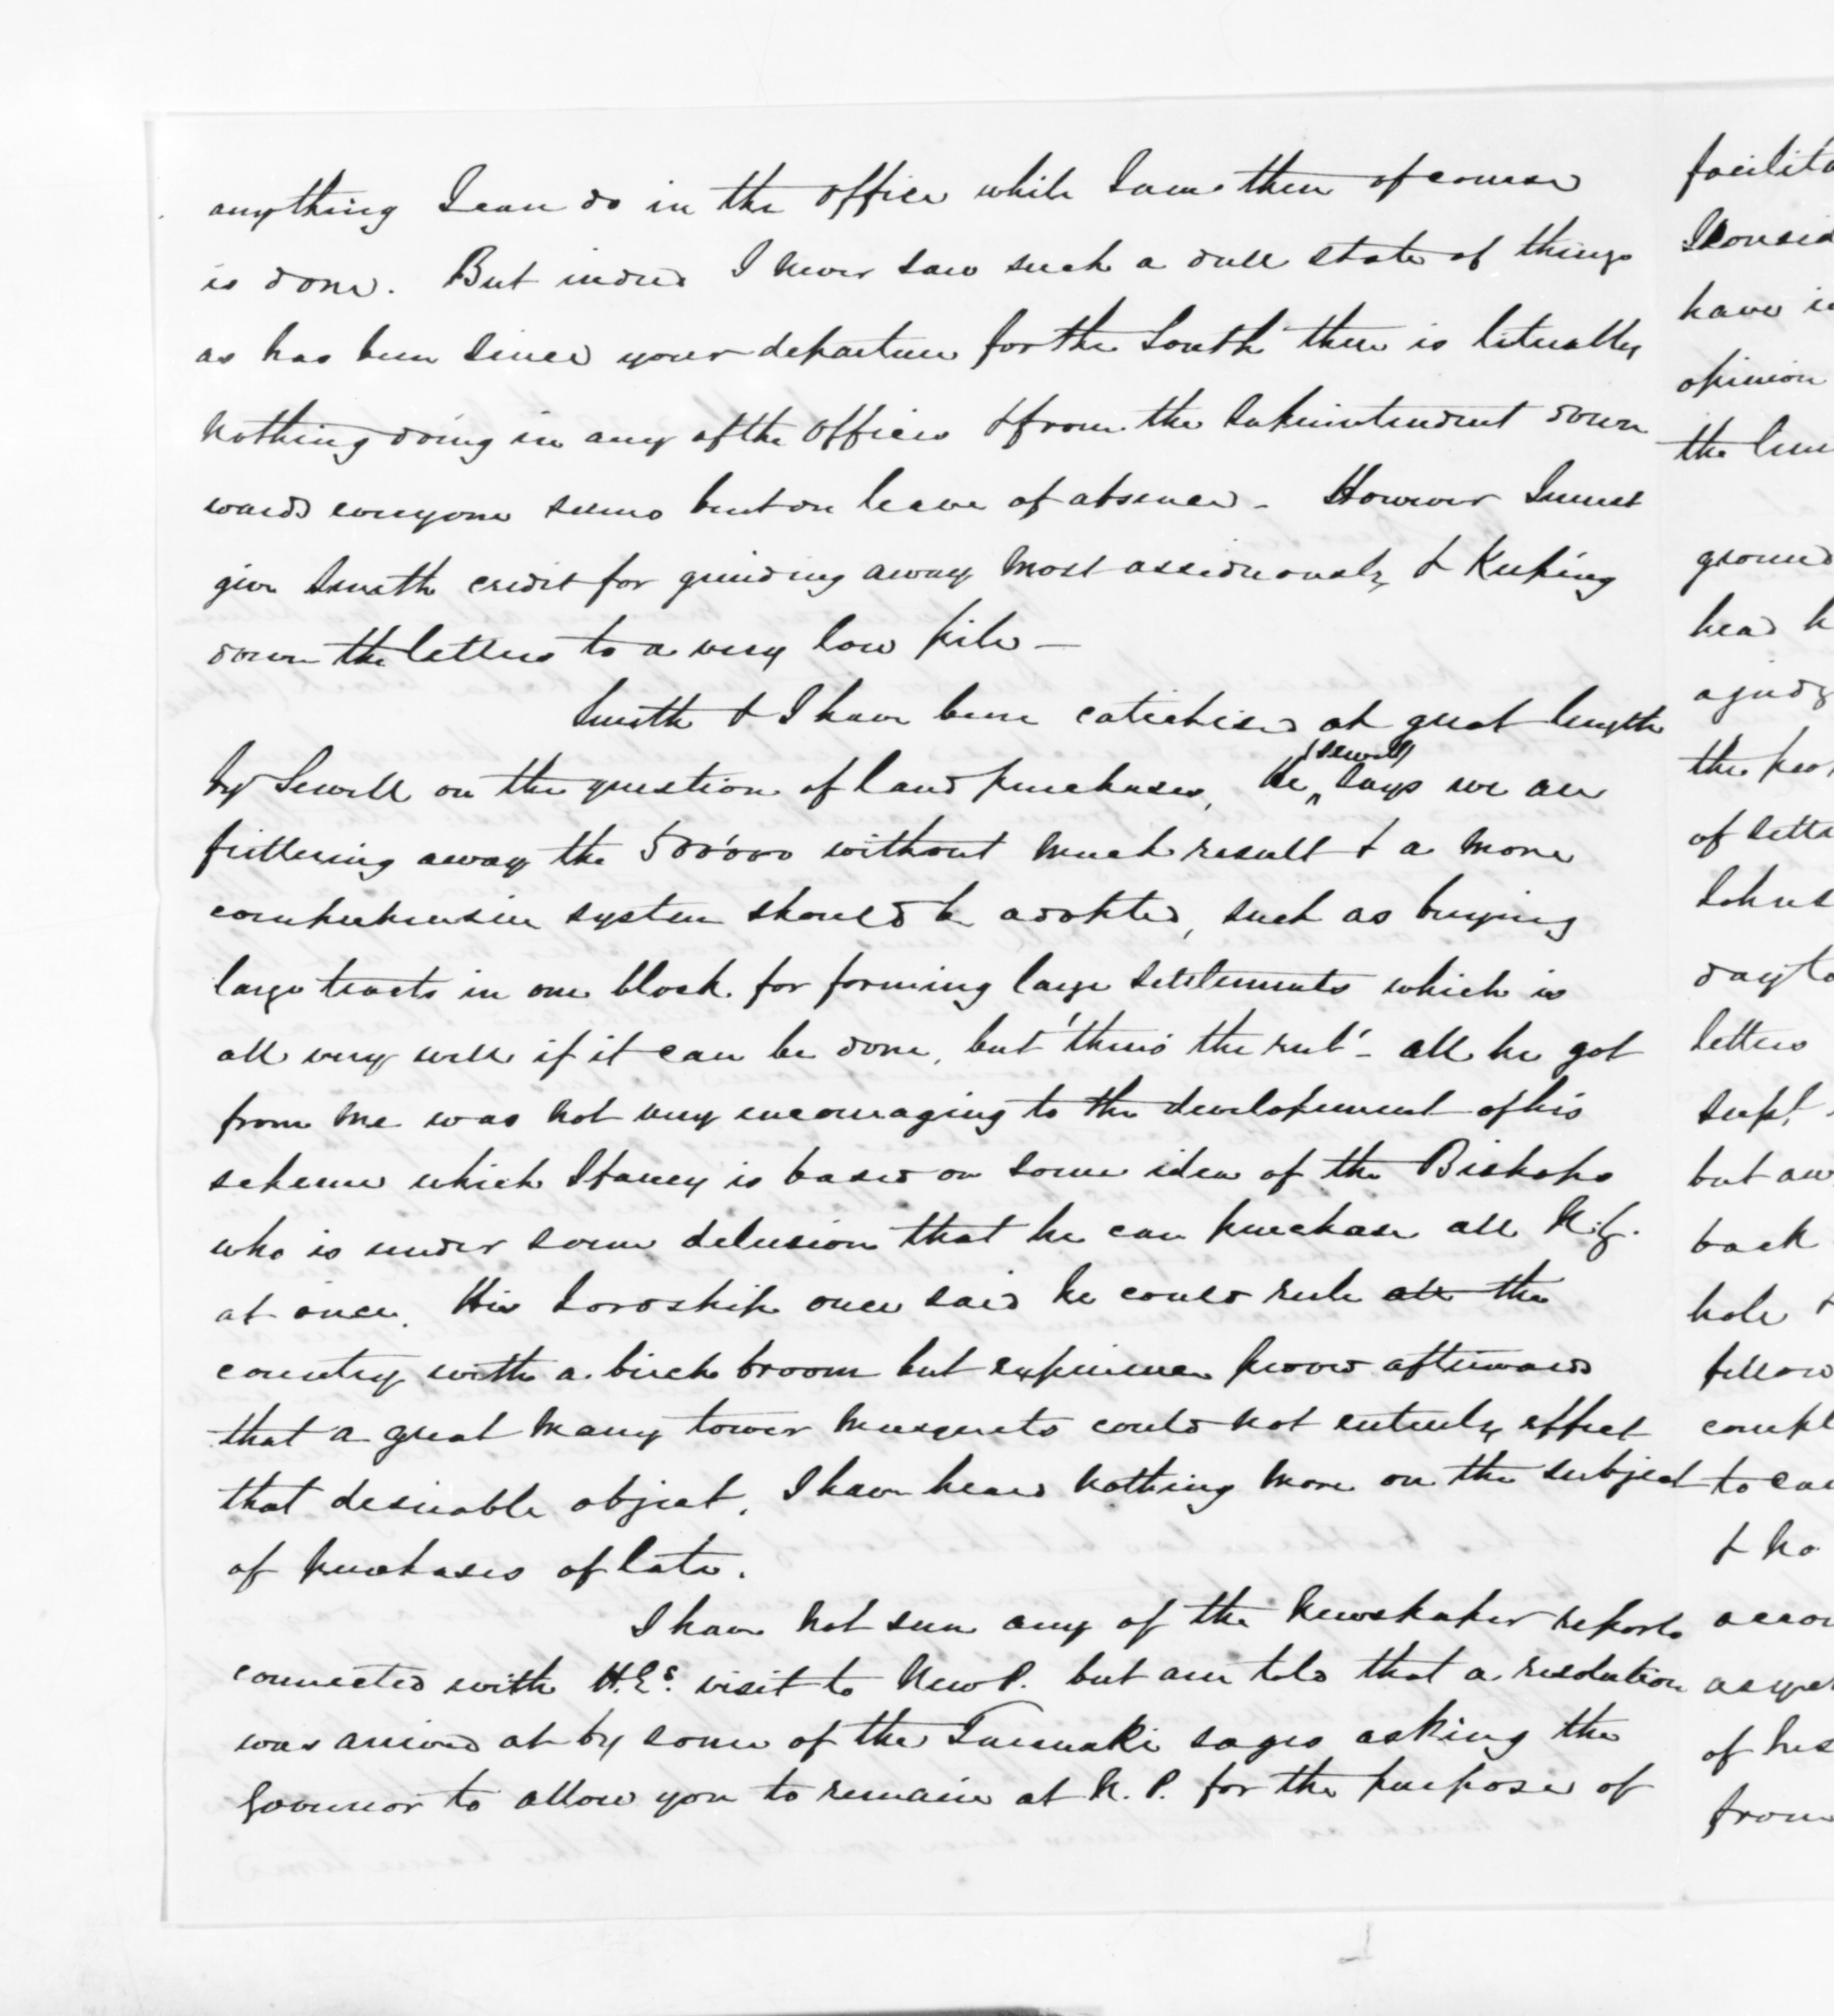 anything I can do in the office while I am there of course
is done. But indeed I never saw such a dull state of things
as has been since your departure for the South there is literally
nothing doing in any of the Offices & from the Superintendent down
wards everyone seems bent on leave of absence - However I must
give Smith credit for grinding away most assiduously & keeping
down the letters to a very low pile -
Smith & I have been catechised at great length
by Sewell on the question of land purchases, he (Sewell) says we are
frittering away the 500'000 without much result & a more
comprehensive system should be adopted, such as buying
large tracts in one block for forming large settlements which is
all very well if it can be done, but 'there's the rub' - all he got
from me was not very encouraging to the developement of his
scheme which I fancy is based on some idea of the Bishops
who is under some delusion that he can purchase all N.Z.
at once. His Lordship once said he could rule all the
country with a birch broom but experience proved afterwards
that a great many tower musquets could not entirely effect
that desirable object. I have heard nothing more on the subject
of purchases of late.
I have not seen any of the Newspaper reports
connected with H.Es. visit to New P. but am told that a resolution
was arrived at by some of the Taranaki sages asking the
Governor to allow you to remain at N.P. for the purpose of
have
opinion
the
ground
head
of
letters
supt.
but
back
hole
to
& no
of
from